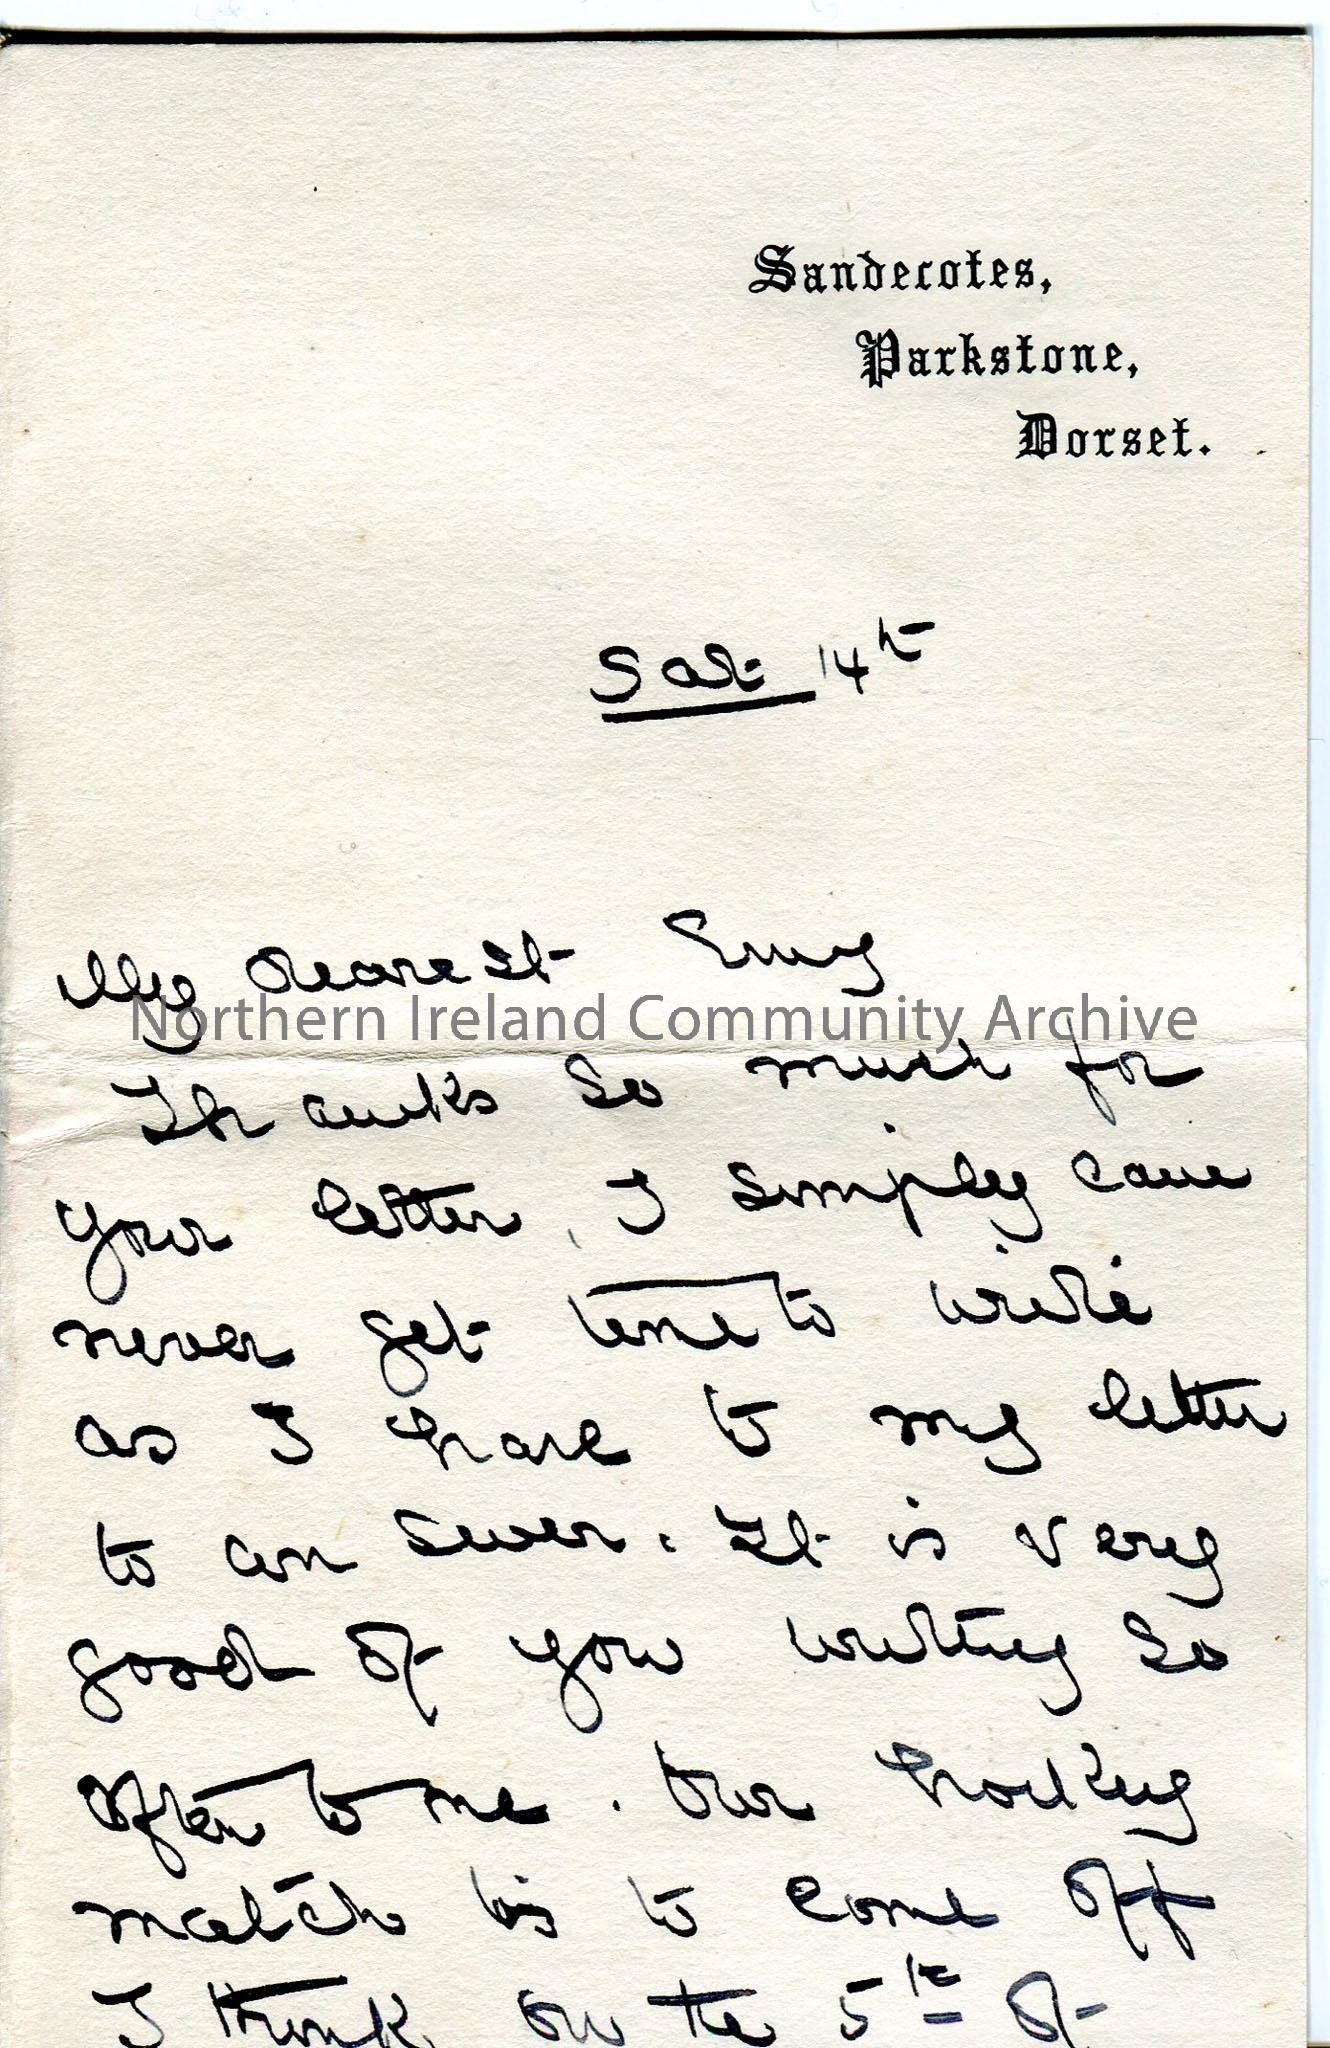 Sandecotes,
Parkstone,
Dorset.
Sat 14th
My dearest
Northern Ireland Community Archive
Thanks so much for
your letter, I simply can
never get time to write
as I have to my letter
to answer. It is very
good of you writing so
often to me. Our hockey
match is to come off
I think on the 5th of